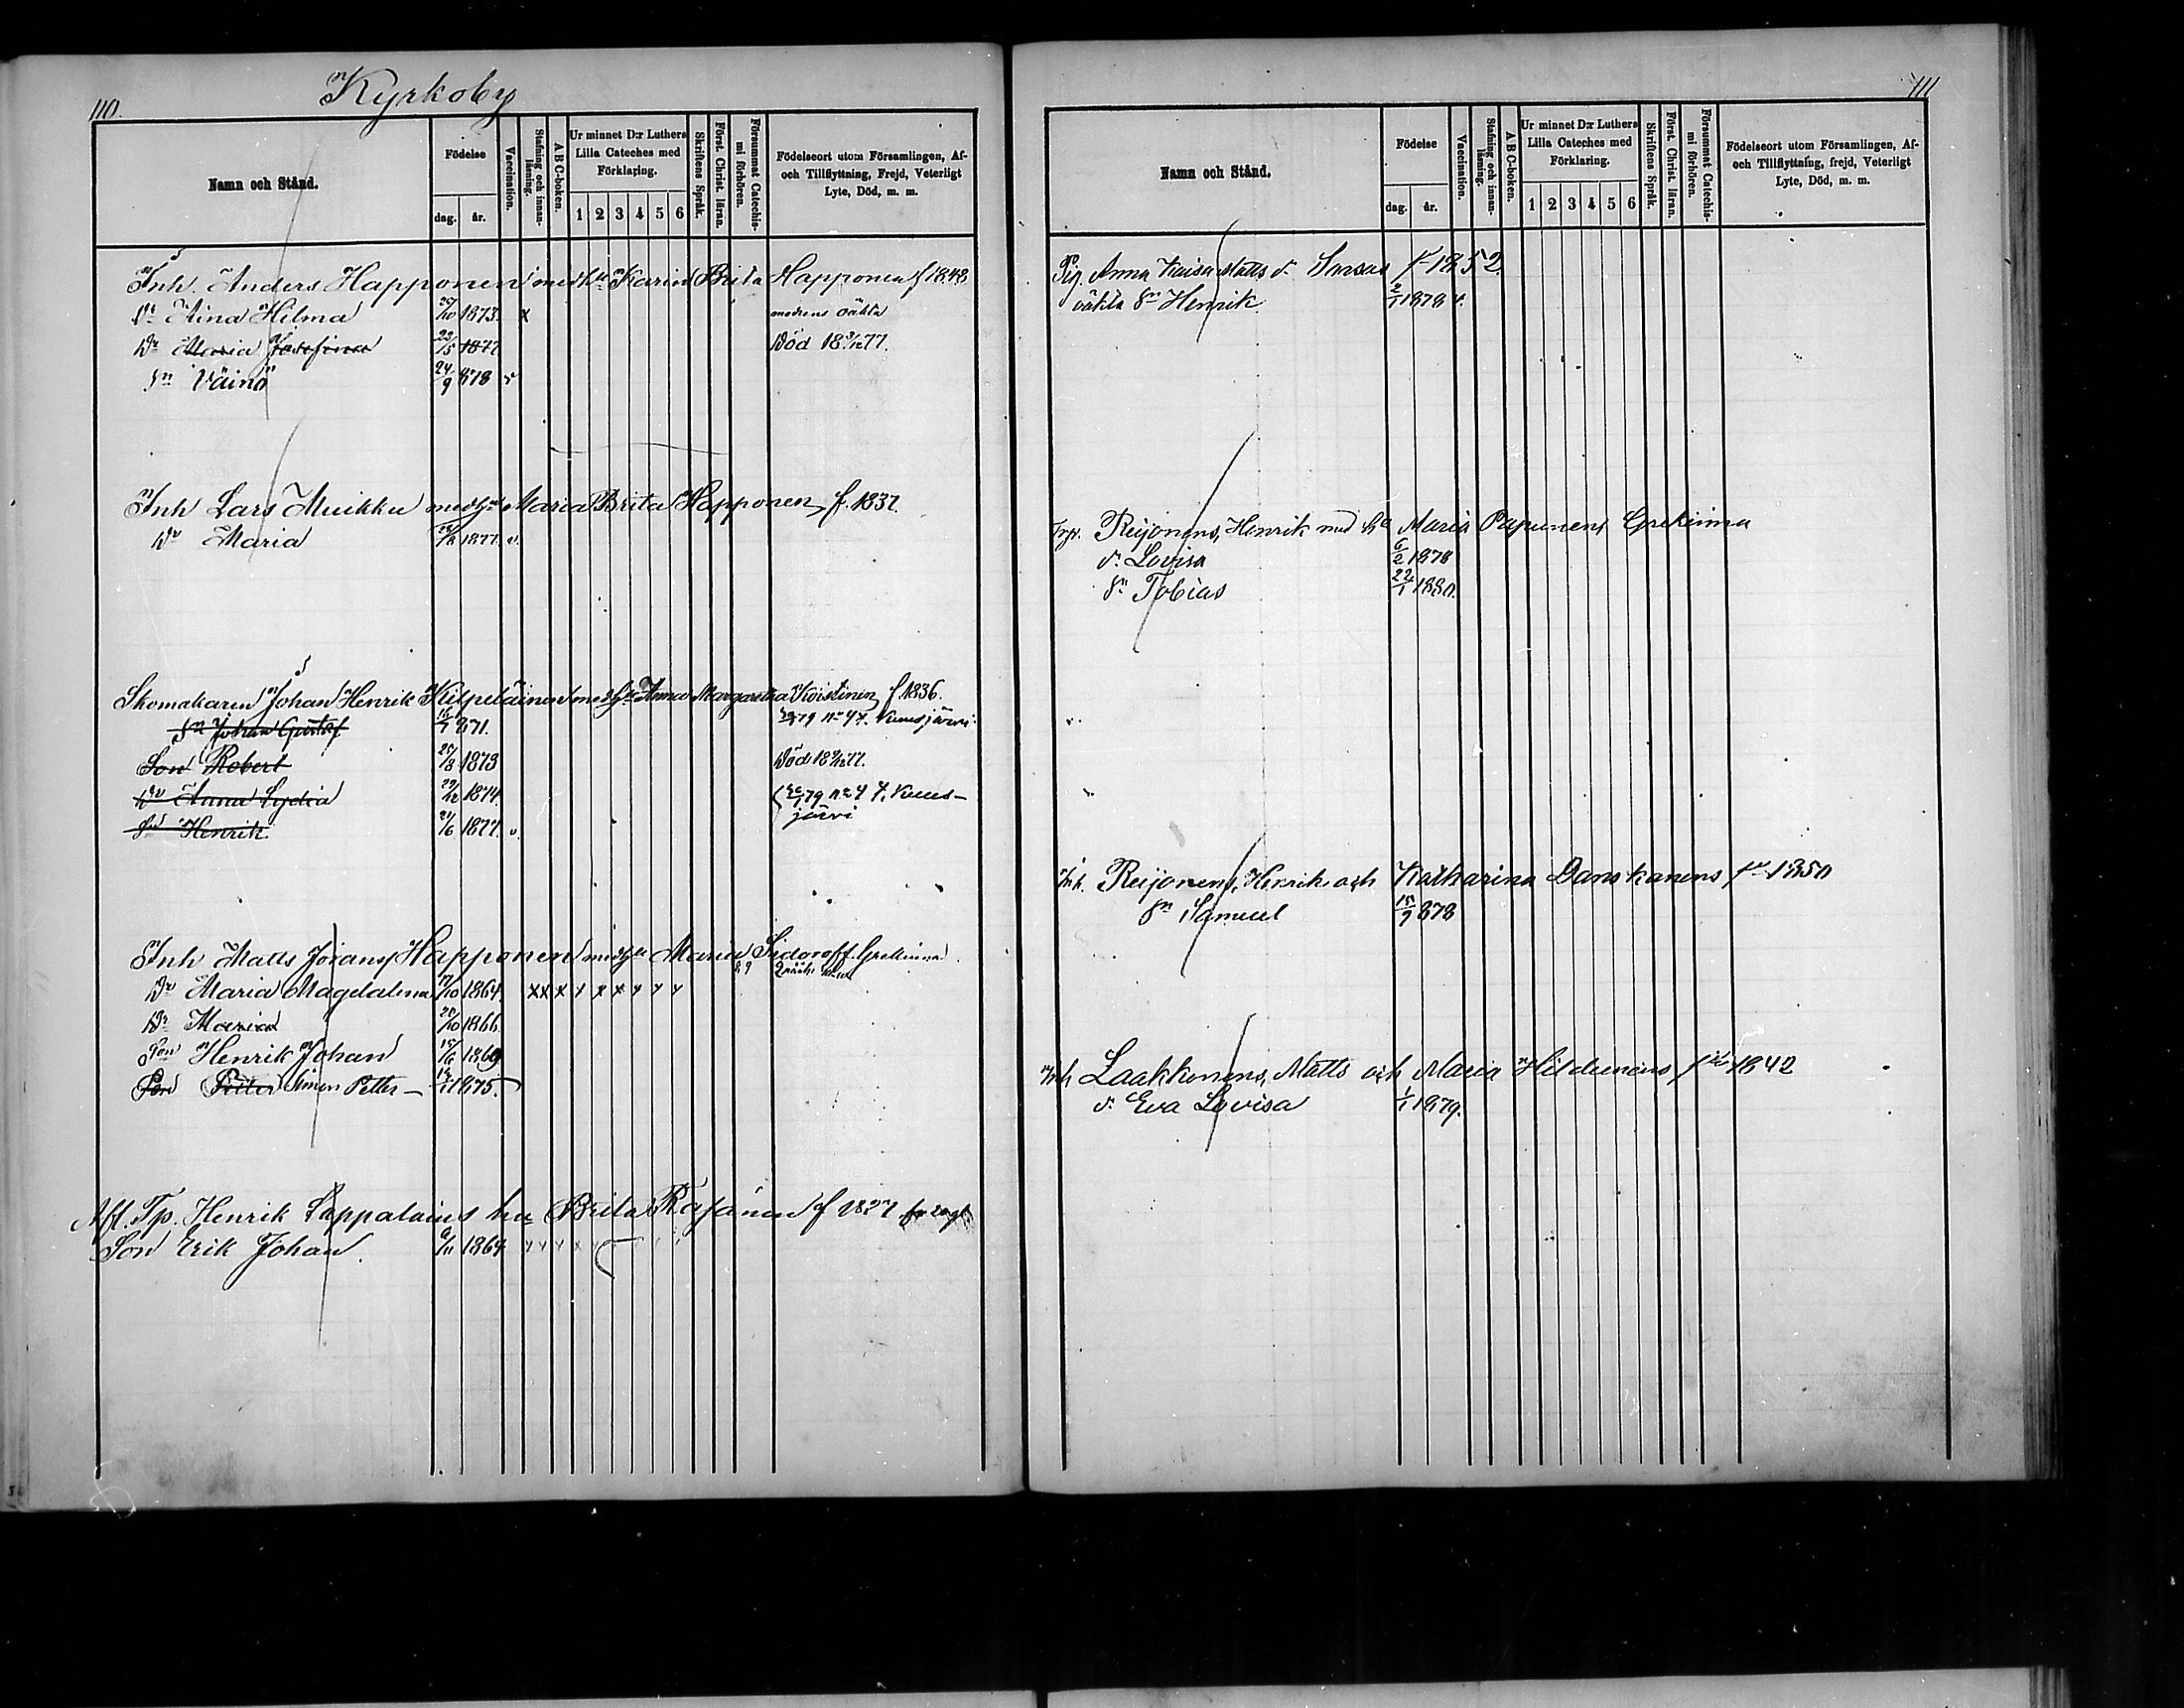 110.
Kyrkoby
Namn och Stånd.
Födelse
dag.
år.
Vaccination.
Stafning och innanläsning.
A B C-boken.
Ur minnet D:r Luthers
Lilla Cateches med
Förklaring.
1 2 3 4 5 6
Skriftens Språk.
Först. Christ. läran.
Försummat Catechismi förhören.
Födelseort utom Församlingen, Af-
och Tillflyttning, Frejd, Veterligt
Lyte, Död, m. m.
Inh. Anders Happonen med hu Karin Brita Happonen f 1848
Dr Aina Hilma 25/10 1873. x modrens oäkta
Dr Maria Josefina 22/5 1877 Död 18 3/12 77.
Sn Väinö 24/9 878 v
Inh Lars Muikku med hu Maria Brita Happonen, f. 1837.
Dr Maria 1877. v.
Skomakaren Johan Henrik Kilpeläinen med hu Anna Margaretha Koistinen f. 1836.
Sn Johan Gustaf 871. 79 no 47. Kuusjärvi
Son Robert 20/8 1873 Död 18 77.
Dr Anna Lydia 1874. 79 no 47. Kuus-
järvi
Sn Henrik 1877. v.
Inh Matts Johans Happonen med hu Maria Sidoroff. Grekinna.
Dr Maria Magdalena /10 1864. x x x x x x x x x
Dr Maria 20/10 1866.
Son Henrik Johan 15/6 1869
Son Petter Simon Petter - 1875.
Afl. Tp. Henrik Lappalains hu Brita f 1827
Son Erik Johan. 1864
111
Namn och Stånd.
Födelse
dag.
år.
Vaccination.
Stafning och innanläsning.
A B C-boken.
Ur minnet D:r Luthers
Lilla Cateches med
Förklaring.
1 2 3 4 5 6
Skriftens Språk.
Först. Christ. läran.
Försummat Catechismi förhören.
Födelseort utom Församlingen, Af-
och Tillflyttning, frejd, Veterligt
Lyte, Död, m. m.
Pig. Anna Kaisa Matts d. f. 1852.
oäkta Sn Henrik 2/1 1878 v.
Reijonens, Henrik med hu Maria Papunens, Grekinna
d. Lovisa 6/2 1878
Sn Tobias 22/1 1880.
Inh. Reijonens, Henrik och Katharina Danskanens, f. 1850
Sn Samuel 15/9 878
Inh Laakkonens, Matts och Maria Hildunens f. 1842
d. Eva Lovisa 1/1 1879.